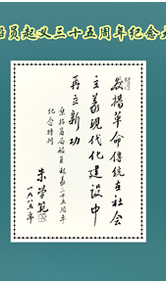 员起义三十五周年纪念
發揚革命传统在社会
主义现代化建设中
再立新功
招商局船員起义三十五周年
纪念特刊
朱学范
一九八五年